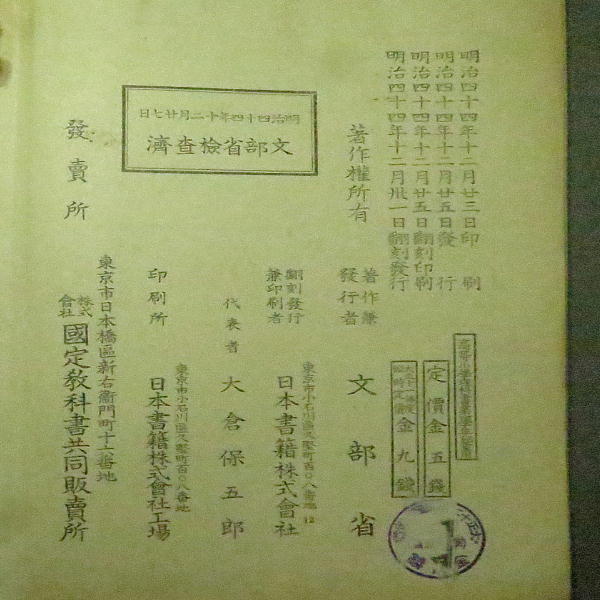 明治四十四年十二月廿三日印刷
明治四十四年十二月廿五日發行
明治四十四年十二月廿五日翻刻印刷
明治四十四年十二月卅一日翻刻發行
著作權所有
明治四十四年十二月廿七日
文部省檢査濟
定價金五錢
臨時定價金九錢
著作兼發行者
文部省
翻刻發行兼印刷者
東京市小石川區久堅町百〇八番地
日本書籍株式會社
代表者
大倉保五郎
印刷所
東京市小石川區久堅町百〇八番地
日本書籍株式會社工場
發賣所
東京市日本橋區新右衞門町十六番地
株式會社國定教科書共同販賣所